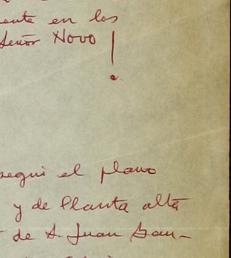 ente en los
Señor Novo!
segui el plano
y de Planta alta
de S. Juan Ban-